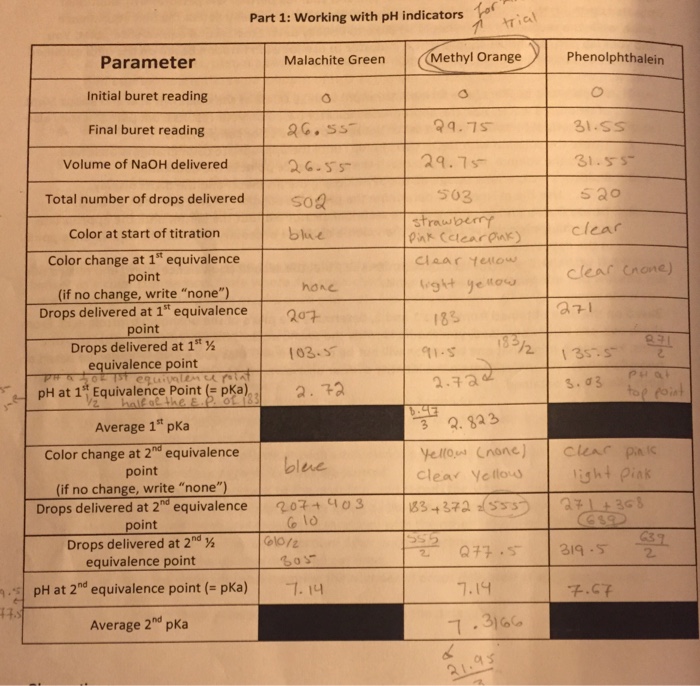 Part 1: Working with pH indicators for
trial
Parameter Malachite Green Methyl Orange Phenolphthalein
Initial buret reading 0 0 0
Final buret reading 26.55 29.75 31.55
Volume of NaOH delivered 26.55 29.75 31.55
Total number of drops delivered 502 503 520
Color at start of titration blue strawberry pink (clear pink) clear
Color change at 1st equivalence
point
(if no change, write "none")
none
clear yellow
light yellow
clear (none)
Drops delivered at 1st equivalence
point
207 183 271
Drops delivered at 1st ½
equivalence point
103.5 91.5 183/2 135.5 271/2
pH @ 1/2 of 1st equivalence point
pH at 1st Equivalence Point (= pKa) 2.72 2.72 3.03 pH at
1/2 half of the E.P. of 183
top point
Average 1st pKa 8.47/3 2.823
Color change at 2nd equivalence
point
(if no change, write "none")
blue
Yellow (none)
Clear Yellow
clear pink
light pink
Drops delivered at 2nd equivalence
point
207+403
610
183+372=555
271+368
639
Drops delivered at 2nd ½
equivalence point
610/2
305
555/2 277.5
319.5 639/2
pH at 2nd equivalence point (= pKa) 7.14 7.14 7.67
Average 2nd pKa 7.3166
21.95